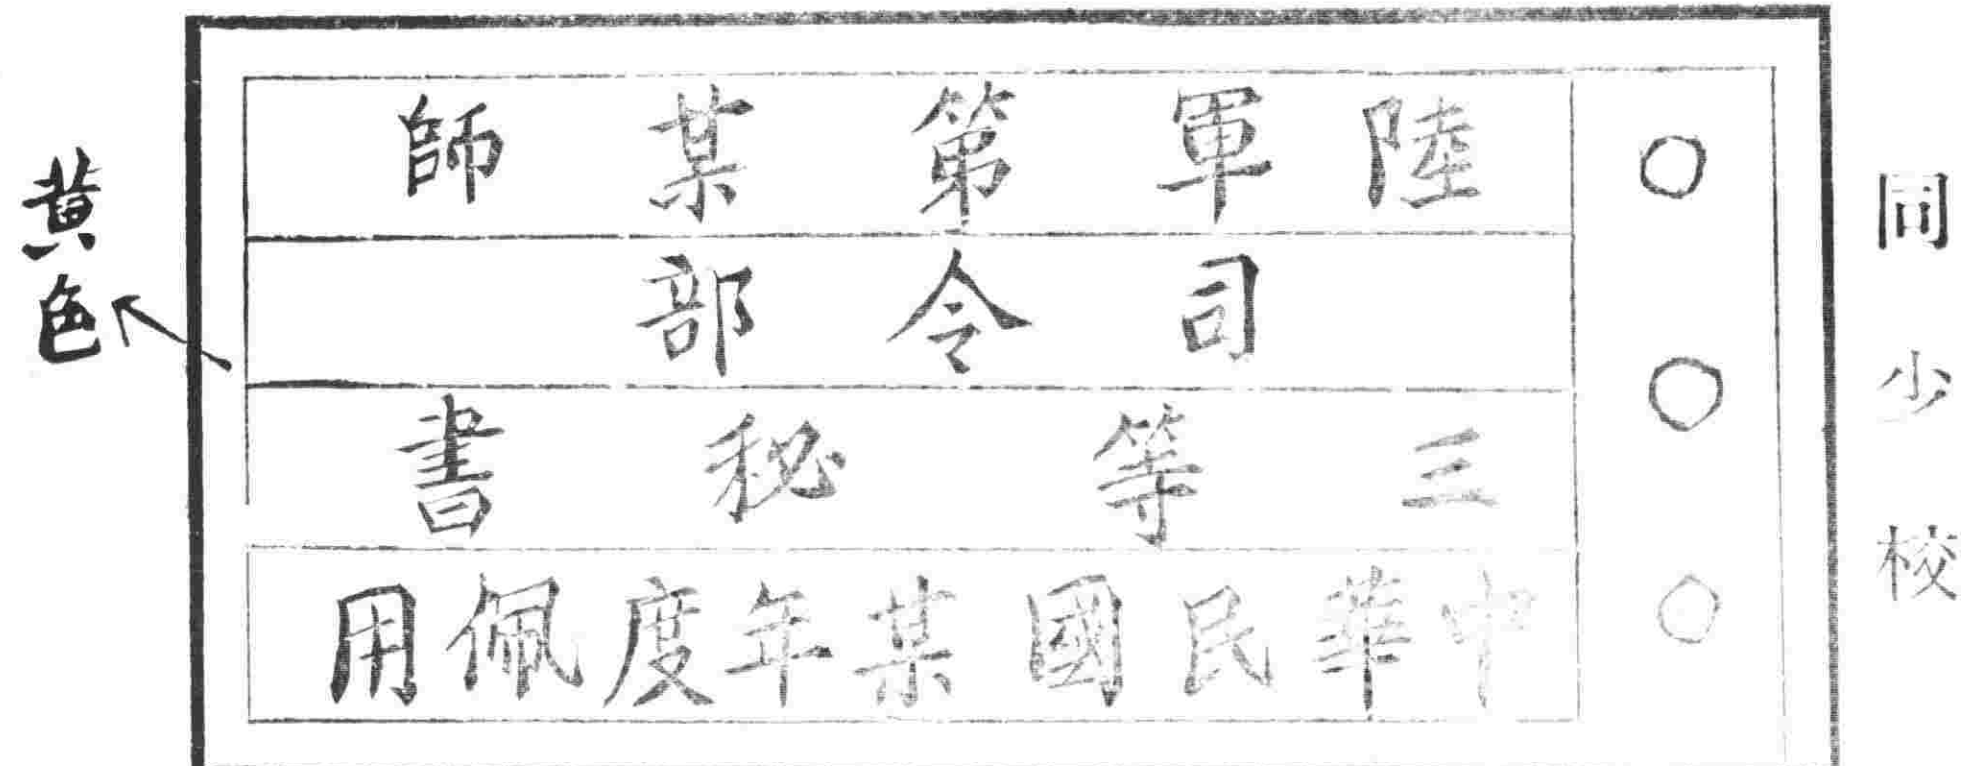 同少校
陸軍第某師
司令部
三等秘書
中華民國某年度佩用
黃色